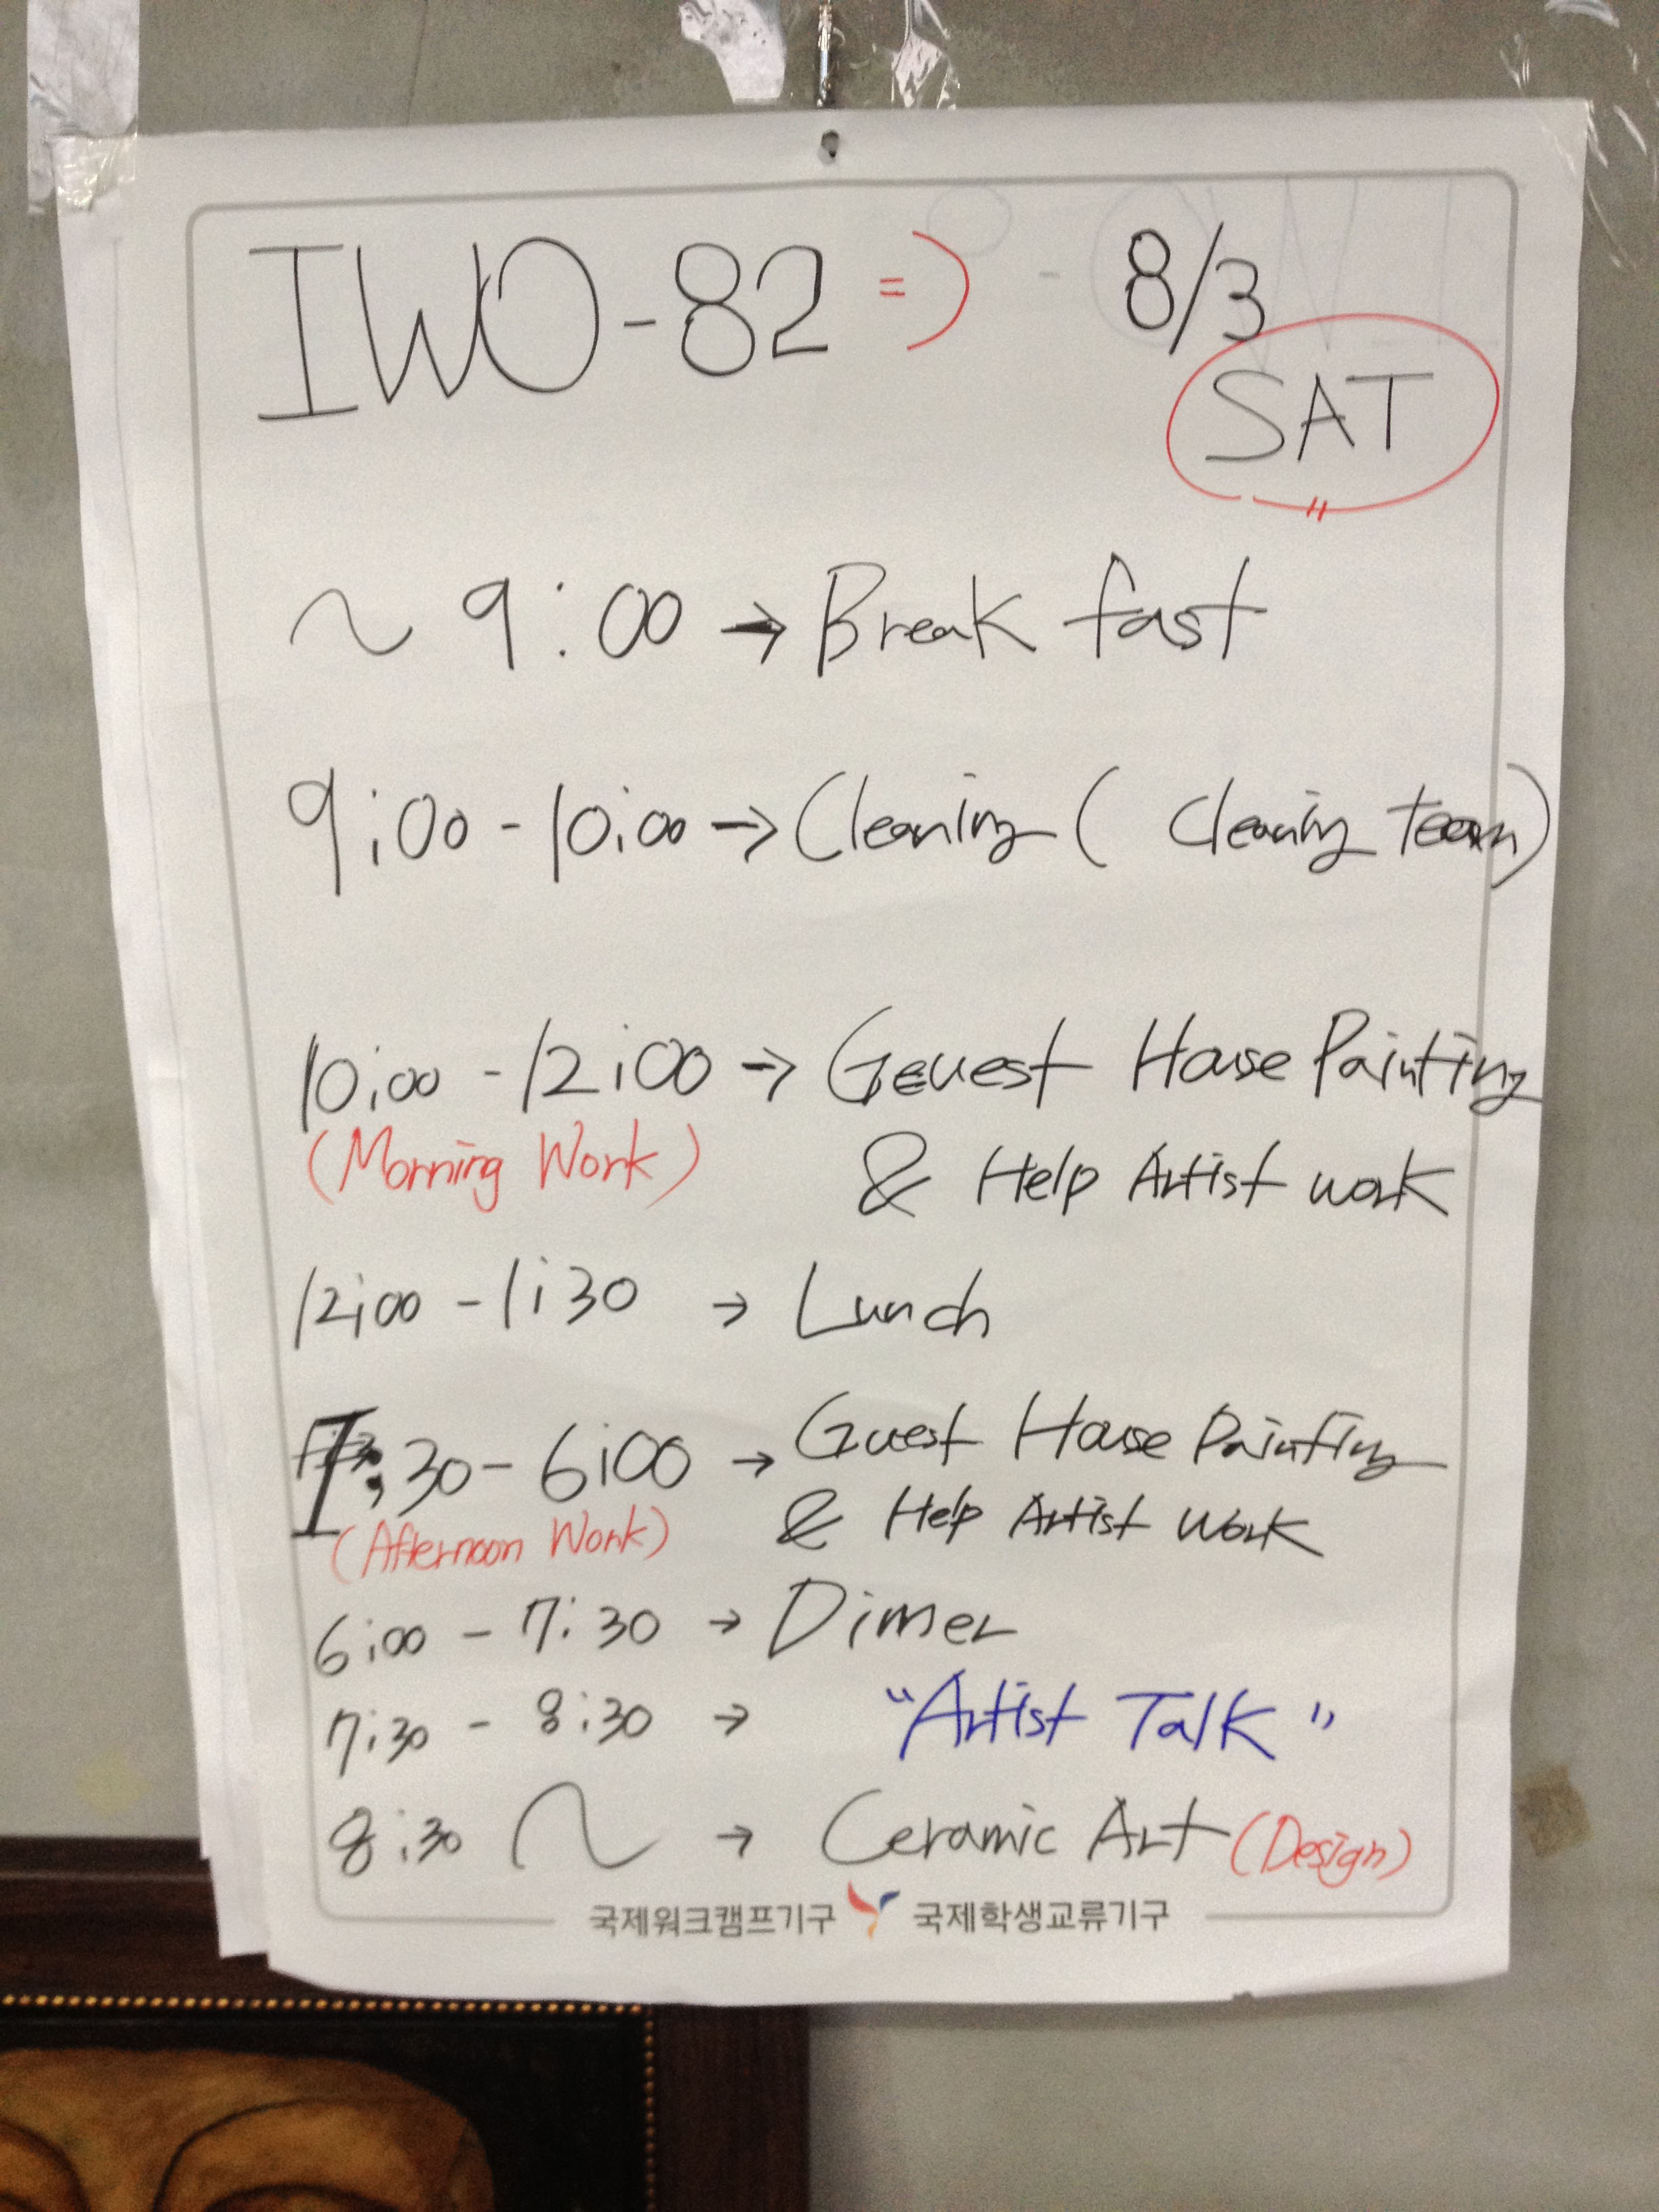 IWO-82 =) - 8/3
SAT
~ 9:00 → Break fast
9:00 - 10:00 → Cleaning ( Cleaning team)
10:00 - 12:00 → Geuest House Painting
(Morning Work) & Help Artist work
12:00 - 1:30 → Lunch
1:30 - 6:00 → Guest House Painting
(Afternoon Work) & Help Artist Work
6:00 - 7:30 → Dinner
7:30 - 8:30 → "Artist Talk"
8:30 ~ → Ceramic Art (Design)
국제워크캠프기구 국제학생교류기구